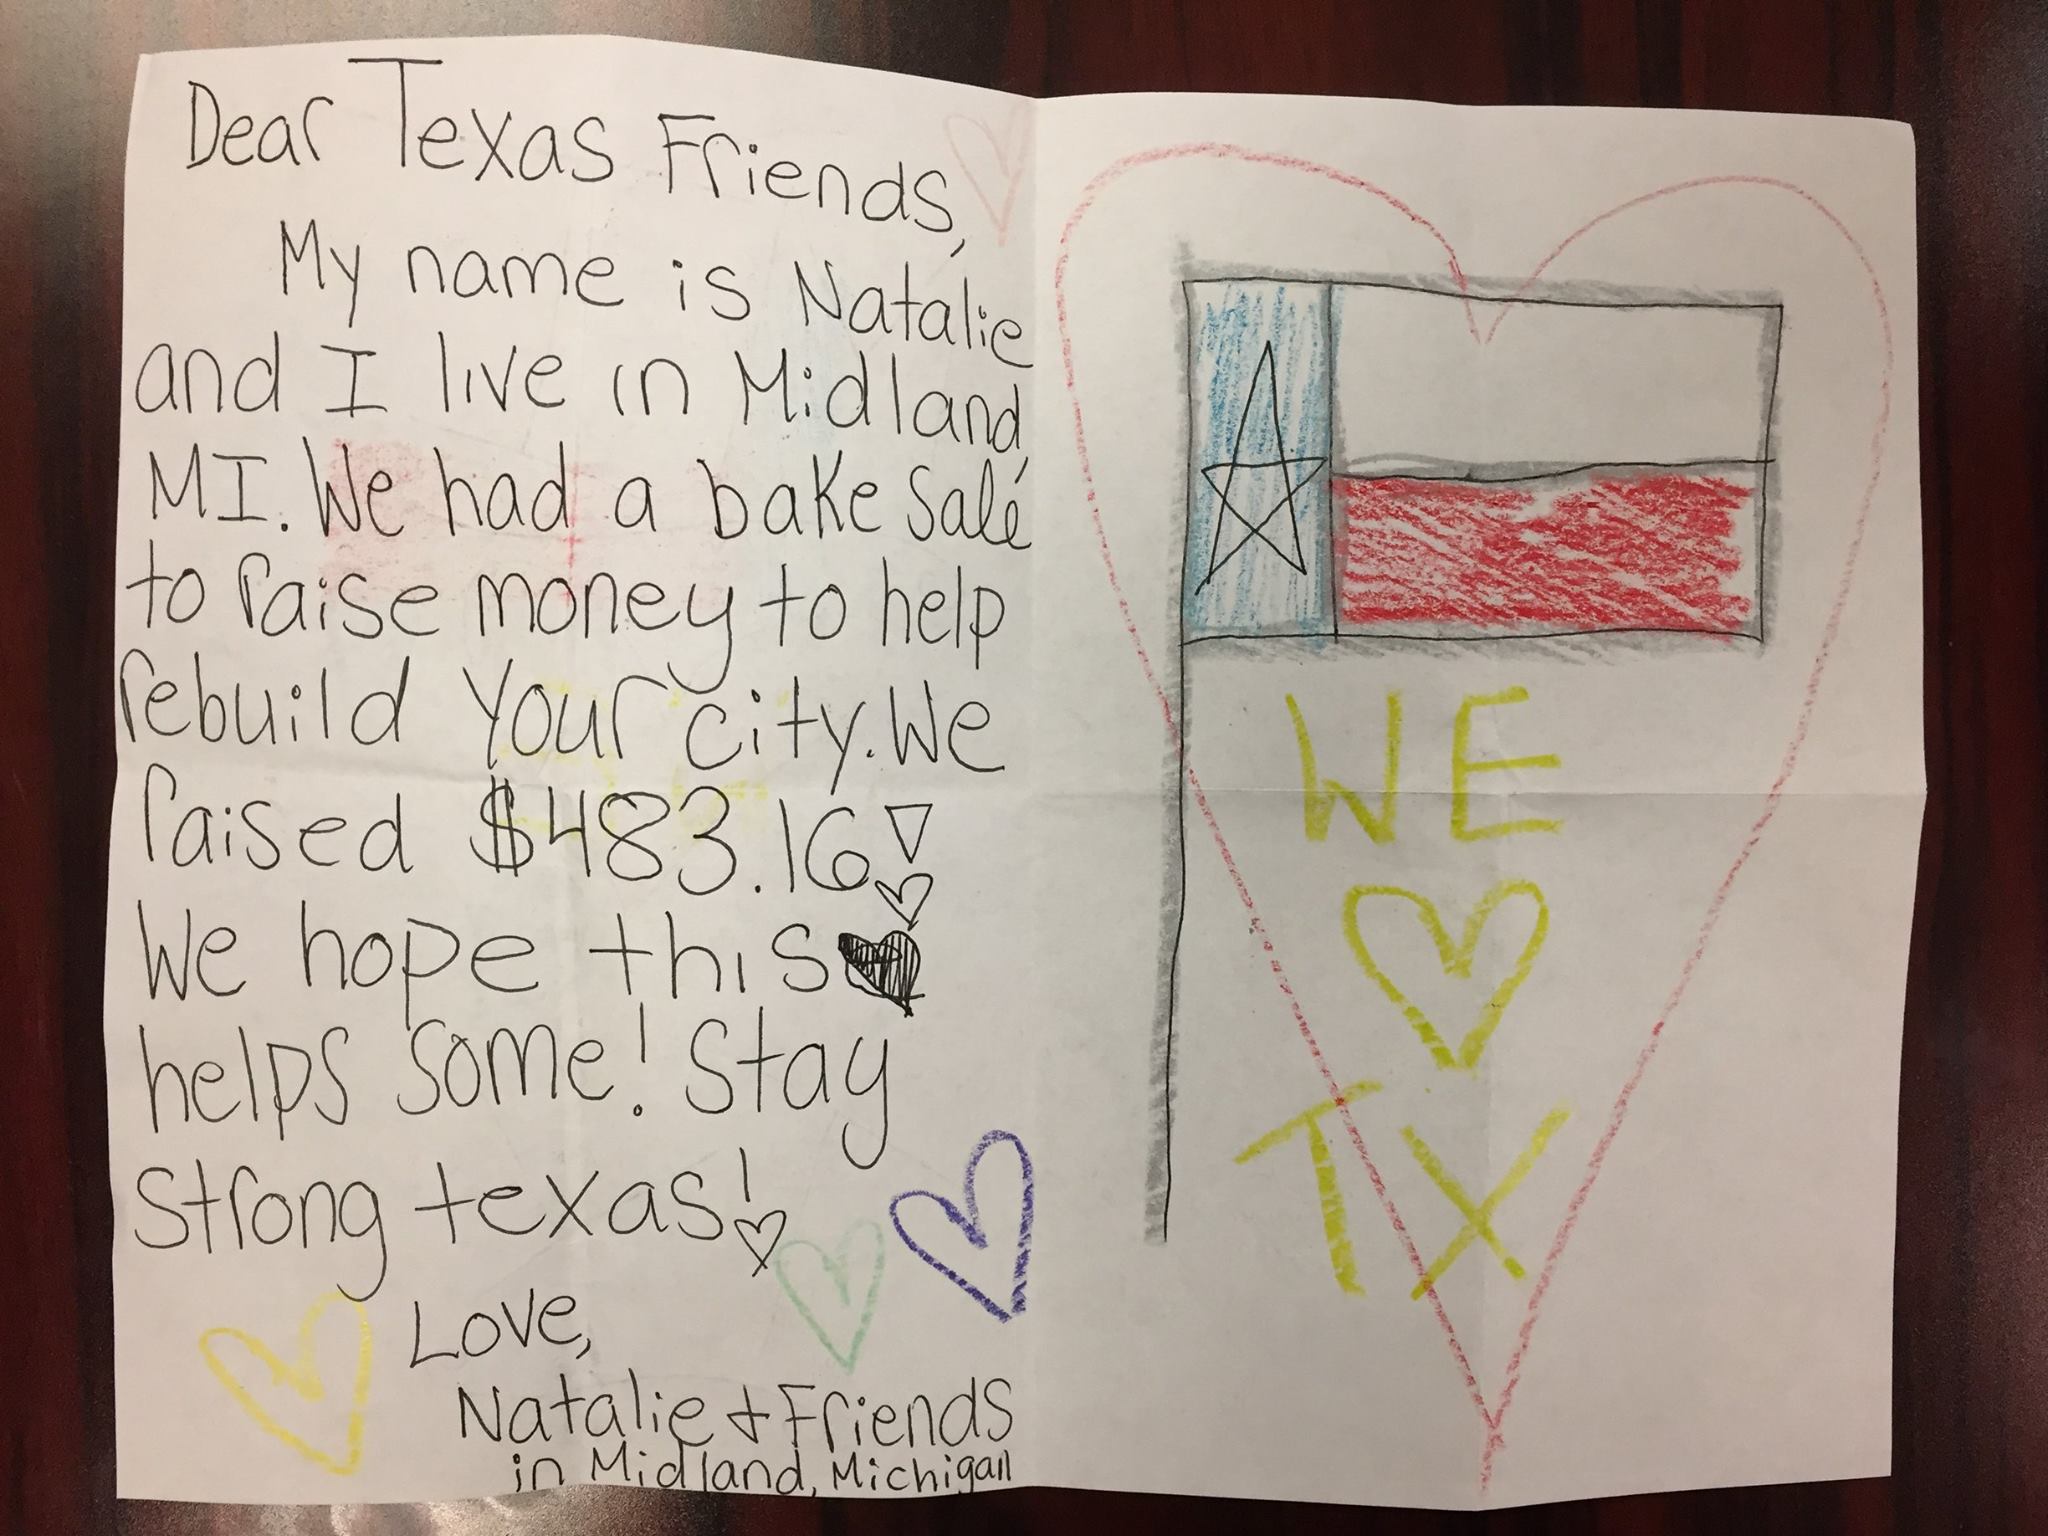 Dear Texas Friends,
My name is Natalie
and I live in Midland,
MI. We had a bake sale
to raise money to help
rebuild your city. We
raised $483.16!
We hope this
helps some! Stay
strong texas!
Love,
Natalie + Friends
in Midland, Michigan
WE
TX